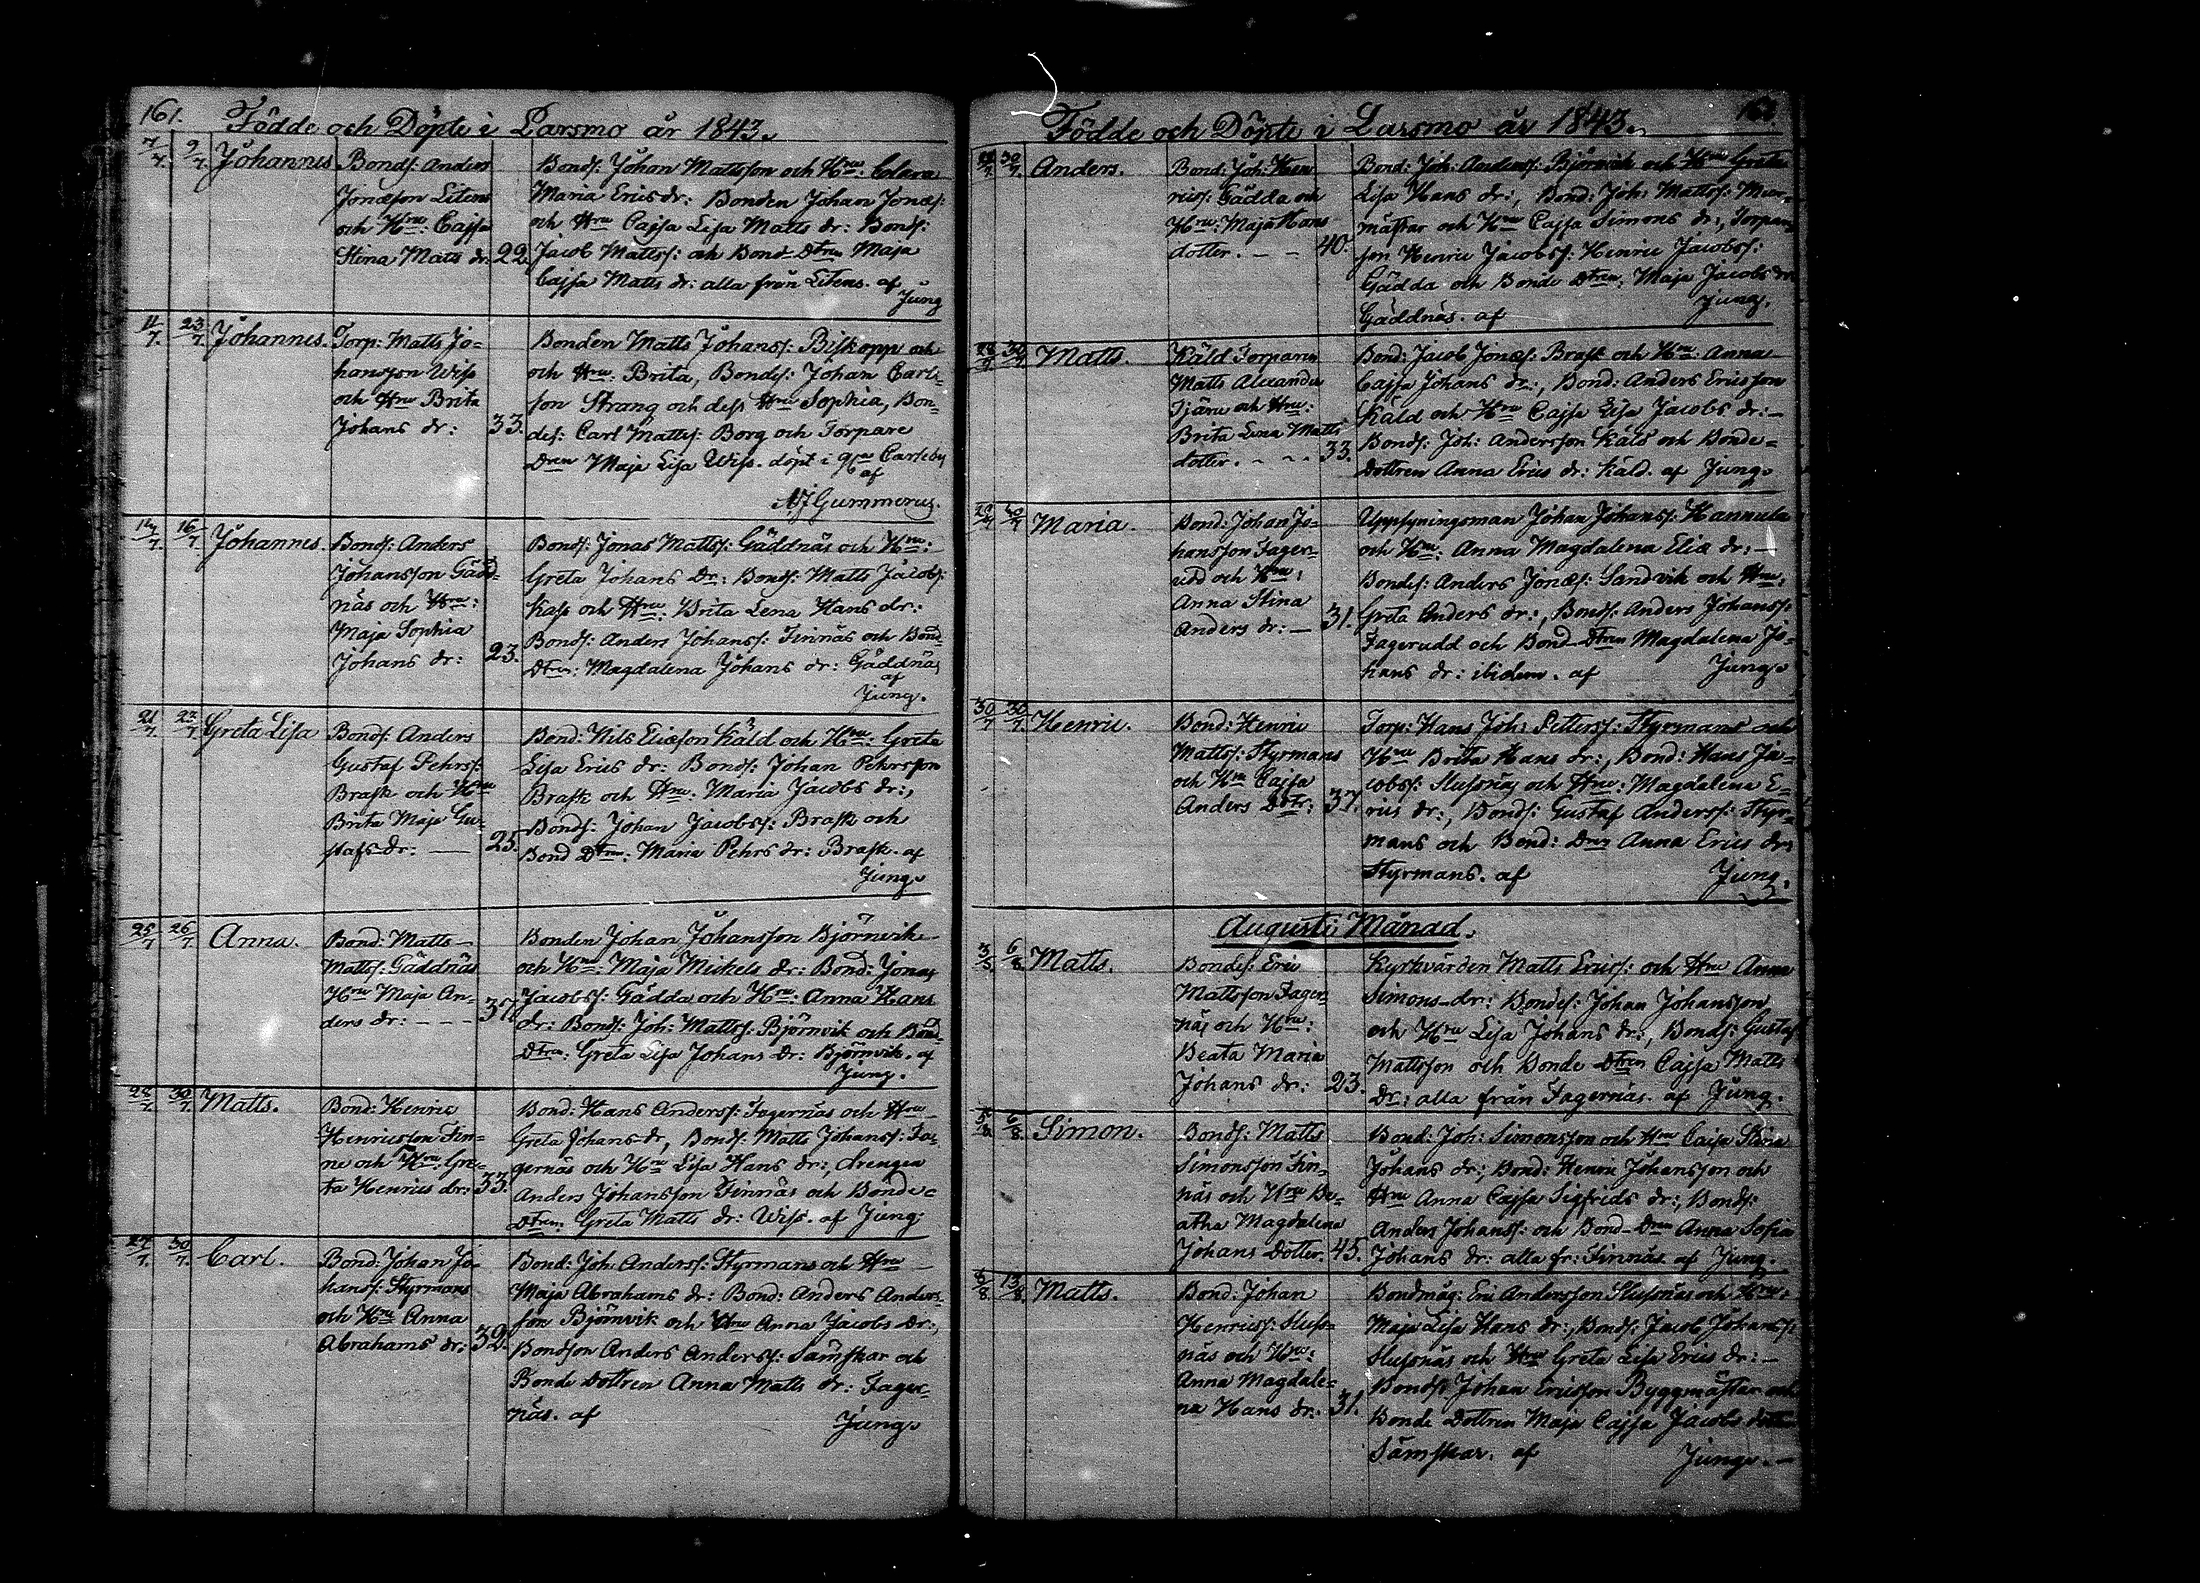 161.
Födde och Döpte i Larsmo år 1843.
7/7. 9/7. Johannes
Bonds: Anders
Jonæson Litens
och Hru: Cajsa
Stina Matts dr: 22.
Bonds: Johan Mattsson och Hru: Clara
Maria Erics dr: Bonden Johan Jonæs:
och Hru Cajsa Lisa Matts dr: Bonds:
Jacob Mattss: och Bond Dtren Maja
Cajsa Matts dr: alla från Litens. af
Jung
11/7. 23/7. Johannes.
Torp: Matts Jo-
hansson Wiss
och Hru Brita
Johans dr: 33.
Bonden Matts Johanss: Biskopp och
och Hru: Brita, Bondes: Johan Carls-
son Strang och dess Hru Sophia, Bon-
des: Carl Mattss: Borg och Torpare
Dren Maja Lisa Wiss. döpt i Carleby
af
Gummerus.
16/7. Johannes.
Bonds: Anders
Johansson Gädd-
näs och Hru:
Maja Sophia
Johans dr: 23.
Bonds: Jonas Mattss: Gäddnäs och Hru:
Greta Johans Dr: Bonds: Matts Jacobs:
Kass och Hru: Brita Lena Hans dr:
Bonds: Anders Johanss: Finnäs och Bond-
Dtren: Magdalena Johans dr: Gäddnäs
af
Jung.
21/7. 23/7 Greta Lisa
Bonds: Anders
Gustaf Pehrs:
Brask och Hru
Brita Maja Gu-
stafs dr: — 25.
Bond: Nils Eliæson Käld och Hru: Greta
Lisa Erics dr: Bonds: Johan Pehrsson
Brask och Hru: Maria Jacobs dr:,
Bonds: Johan Jacobss: Brask och
Bond Dtren: Maria Pehrs dr: Brask. af
Jung.
25/7 26/7 Anna.
Bond: Matts
Mattss: Gäddnäs
Hru Maja An-
ders dr: - - - 37.
Bonden Johan Johansson Björnvik
och Hru: Maja Michels dr: Bond: Jonas
Jacobss: Gädda och Hru: Anna Hans
dr: Bonds: Joh: Mattss: Björnvik och Bond
Dtren: Greta Lisa Johans Dr: Björnvik. af
Jung.
28/7. 30/7. Matts.
Bond: Henric
Henricsson Fin-
ne och Hru: Gre-
ta Henrics dr: 33.
Bond: Hans Anderss: Fagernäs och Hru
Greta Johans dr, Bonds: Matts Johanss: Fa-
gernäs och Hru Lisa Hans dr:, drengen
Anders Johansson Finnäs och Bonde-
Dtren: Greta Matts dr: Wiss. af Jung.
27/7. 30/7. Carl.
Bond: Johan Jo-
hanss: Styrmans
och Hru Anna
Abrahams dr: 32.
Bond: Joh: Anderss: Styrmans och Hru
Maja Abrahams dr: Bond: Anders Anders-
son Björnvik och Hru Anna Jacobs Dr:,
Bondson Anders Anderss: Sämskar och
Bonde Dottren Anna Matts dr: Fager-
näs. af Jung.
Födde och Döpte i Larsmo år 1843.
30/7 Anders.
Bond: Joh: Hen-
ricss: Gädda och
Hru: Maja Hans
dotter. - - 40.
Bond: Joh: Anderss: Björnvik och Hru Greta
Lisa Hans dr:, Bond: Joh: Mattss: Mur-
mästar och Hru Cajsa Simons dr:, Torpare
son Henric Jacobss: Henric Jacobss:
Gädda och Bonde Dtren: Maja Jacobs dr:
Gäddnäs. af Jung.
30/7 Matts.
Käld Torparen
Matts Alexander
Tjäru och Hru:
Brita Lena Matts
dotter. - - - 33.
Bond: Jacob Jonæs: Brask och Hru: Anna
Cajsa Johans dr:, Bond: Anders Ericsson
Käld och Hru Cajsa Lisa Jacobs dr:—
Bonds: Joh: Andersson Käld och Bonde-
Dottren Anna Erics dr: Käld. af Jung.
30/7 Maria.
Bond: Johan Jo-
hansson Fager-
udd och Hru:
Anna Stina
Anders dr: — 31.
Uppsyningsman Johan Johanss: Hannula
och Hru: Anna Magdalena Eliæ dr: —
Bondes: Anders Jonæs: Sandvik och Hru:
Greta Anders dr:, Bonds: Anders Johanss:
Fagerudd och Bond Dtren Magdalena Jo-
hans dr: ibidem. af Jung.
30/7 30/7. Henric.
Bond: Henric
Mattss: Styrmans
och Hru Cajsa
Anders Dotr: 37.
Torp: Hans Joh: Petterss: Styrmans och
Hru Brita Hans dr:, Bond: Hans Ja-
cobss: Slussnäs och Hru: Magdalena E-
rics dr:, Bonds: Gustaf Anderss: Styr-
mans och Bond: Dren Anna Erics dr:
Styrmans. af Jung.
Augusti Månad.
3/8 6/8 Matts.
Bondes: Eric
Mattsson Fager-
näs och Hru:
Beata Maria
Johans dr: 23.
Kyrkvärden Matts Ericss: och Hru Anna
Simons dr: Bondes: Johan Johansson
och Hru Lisa Johans dr:, Bonds: Gustaf
Mattsson och Bonde Dtren Cajsa Matts
Dr: alla från Fagernäs. af Jung.
5/8 6/8 Simon.
Bonds: Matts
Simonsson Fin-
näs och Hru Be-
atha Magdalena
Johans Dotter. 45.
Bond: Joh: Simonsson och Hru Cajsa Stina
Johans dr:, Bond: Henric Johansson och
Hru Anna Cajsa Sigfrids dr:, Bonds:
Anders Johanss: och Bond-Dren Anna Sofia
Johans dr: alla fr: Finnäs. af Jung.
6/8. 13/8. Matts.
Bond: Johan
Henricss: Sluss-
näs och Hru:
Anna Magdale-
na Hans dr: 31.
Bondmåg: Eric Andersson Slussnäs och Hru:
Maja Lisa Hans dr:, Bonds: Jacob Johanss:
Slussnäs och Hru Greta Lisa Erics dr: —
Bonds: Johan Ericsson Byggmästar och
Bonde Dottren Maja Cajsa Jacobs dotter
Sämskar. af Jung. —